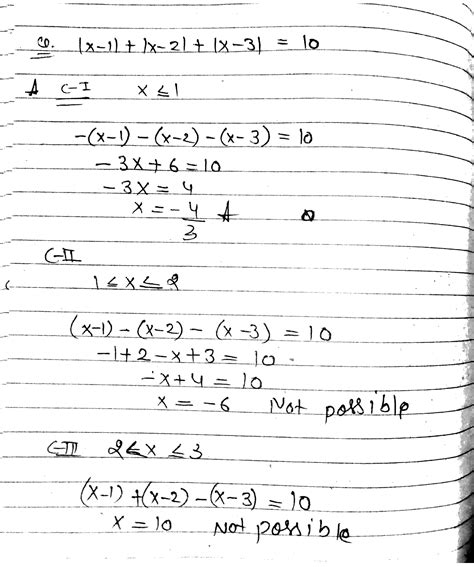 Q. |x-1| + |x-2| + |x-3| = 10
A C-I x ≤ 1
-(x-1) - (x-2) - (x-3) = 10
-3x + 6 = 10
-3x = 4
x = -4/3 A
C-II
1 ≤ x ≤ 2
(x-1) - (x-2) - (x-3) = 10
-1 + 2 - x + 3 = 10
-x + 4 = 10
x = -6 Not possible
C-III 2 ≤ x ≤ 3
(x-1) + (x-2) - (x-3) = 10
x = 10 Not possible